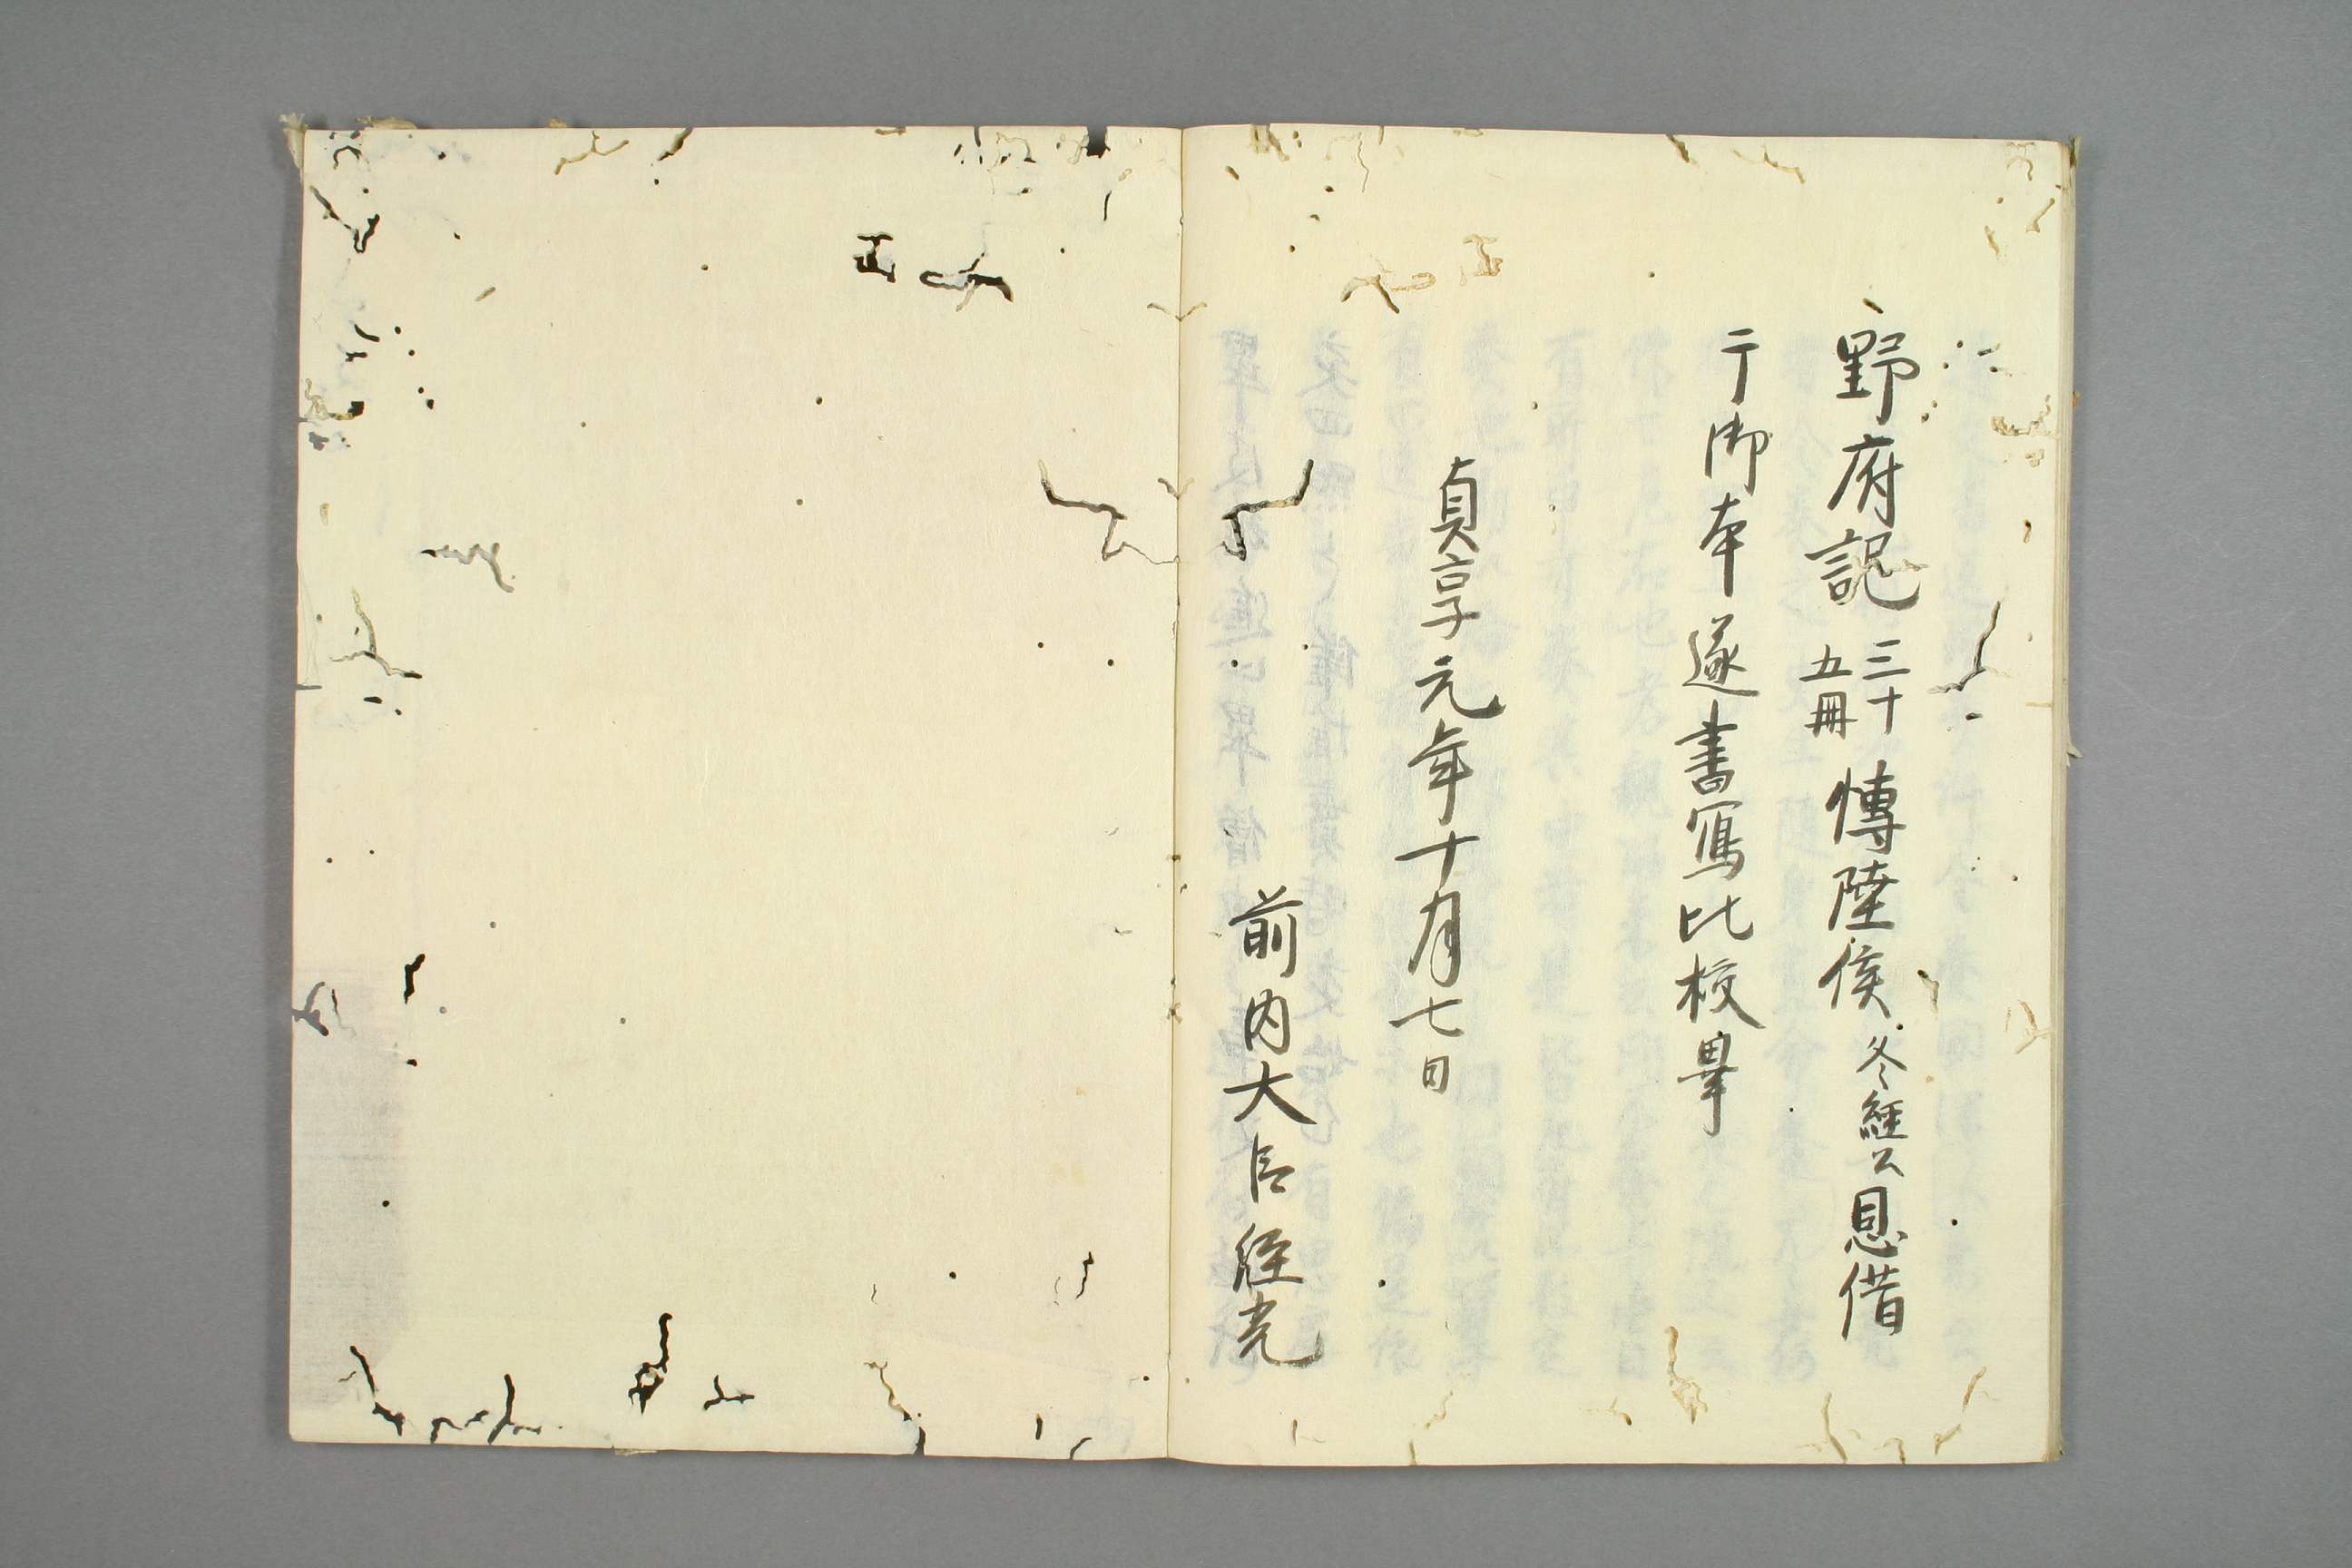 野府記三十五冊博陸侯冬経公恩借
于御本遂書寫比校畢
貞享元年十月七日
前内大臣経光